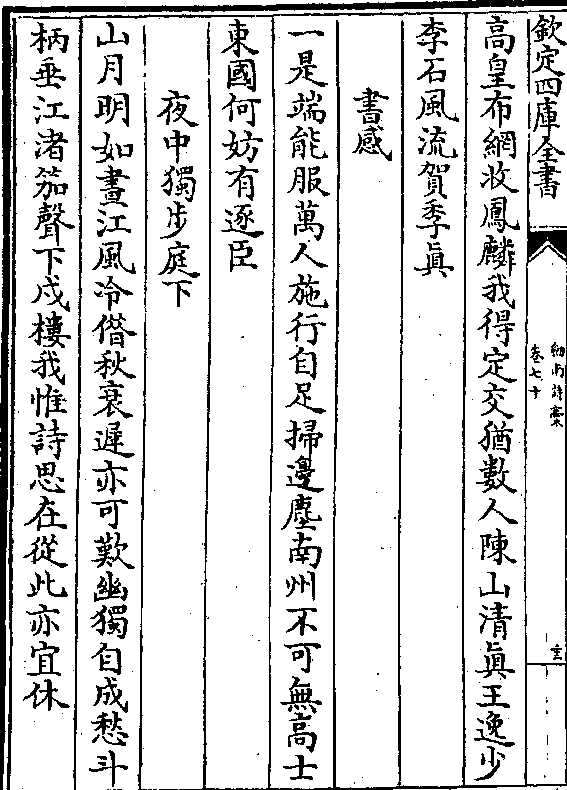 欽定四庫全書
劍南詩槀
卷七十
高皇布網收鳳麟我得定交猶數人陳山清真王逸少
李石風流賀季真
書感
一是端能服萬人施行自足掃邊塵南州不可無高士
東國何妨有逐臣
夜中獨步庭下
山月明如晝江風冷借秋衰遲亦可歎幽獨自成愁斗
柄垂江渚笳聲下戍樓我惟詩思在從此亦宜休